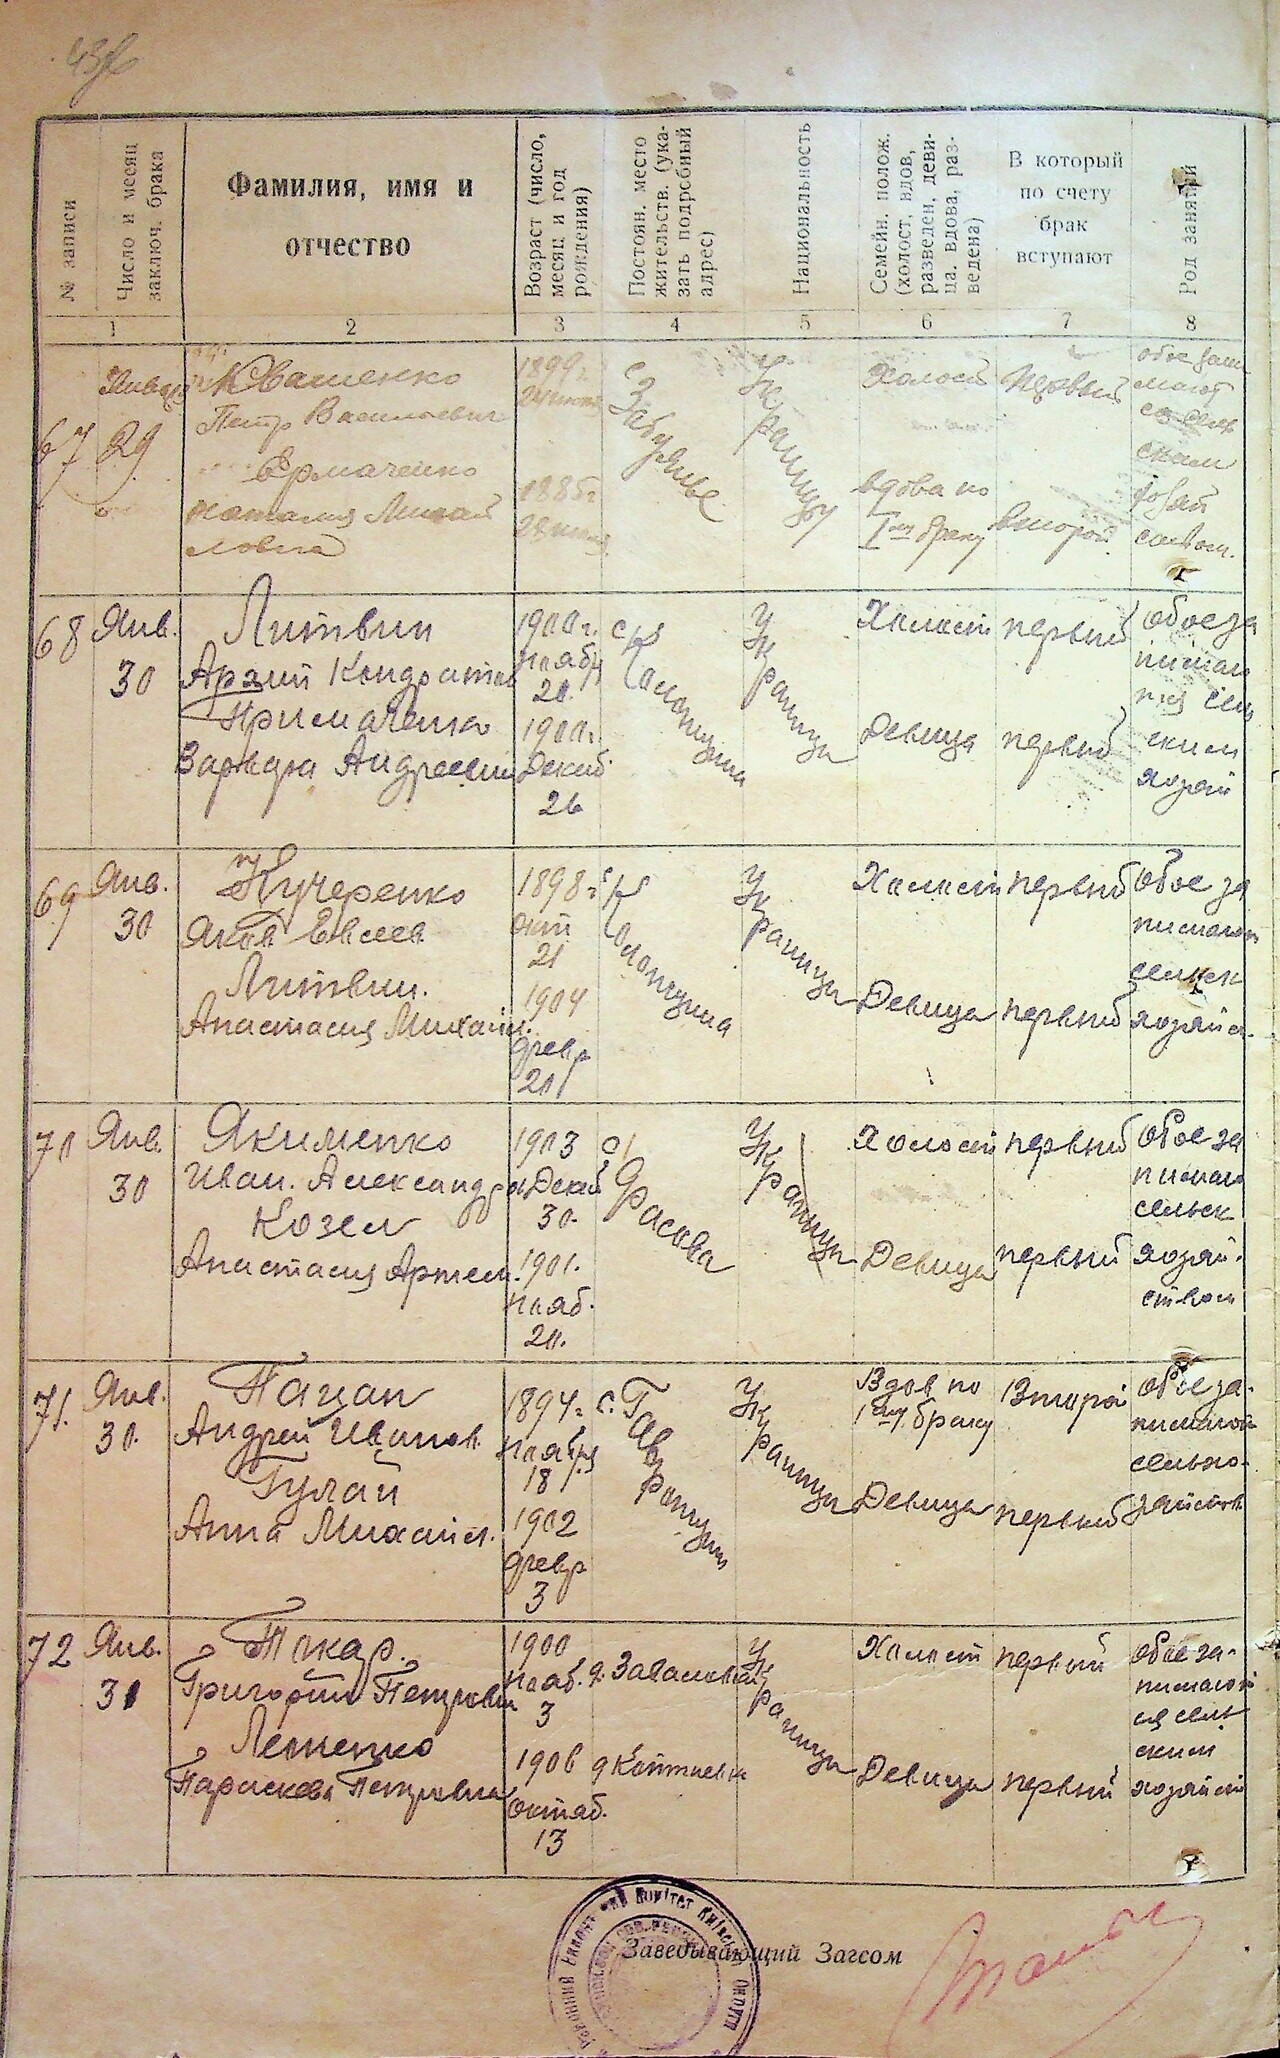 № записи
Число и месяц
заключ. брака
Фамилия, имя и
отчество
Возраст (число,
месяц и год
рождения)
Постоян. место
жительств. (ука-
зать подробный
адрес)
Национальность
Семейн. полож.
(холост, вдов,
разведен, деви-
ца, вдова, раз-
ведена)
В который
по счету
брак
вступают
Род занятий
1
2
3
4
5
6
7
8
67
Января
29
Квашенко
Петр Васильевич
Ермаченко
Наталия Михай
ловна
1899г.
1885г
с Забуянье
Украинцы
Холост
вдова по
I му браку
Первый
второй
обое зани
мают
ся сель
ским
хозяй
ством.
68
Янв.
30
Литвин
Кондратов
Примаченко
Варвара Андреевна
1900г.
ноябр
20.
1900г.
Декаб
26
с
Украинцы
Холост
Девица
первый
первый
обое за
нимаю
тся сель
ским
хозяй
69
Янв.
30
Кучеренко
Яков Евсеев
Литвин.
Анастасия Михайл.
1898г
окт
21
1904
февр
20
с
Украинцы
Холост
Девица
первый
первый
Обое за
нимают
сельск
хозяйс.
70
Янв.
30
Якименко
Иван. Александр
Козел
Анастасия Артем.
1903
Декаб
30.
1901.
нояб.
20.
с
Фасова
Украинцы
Холост
Девица
первый
первый
Обое за
нимаю
сельск
хозяй-
ством
71.
Янв.
30.
Пацан
Андрей Иванов.
Гулай
Анна Михайл.
1894г
ноября
18
1902
февр
3
с. Гавронщин
Украинцы
Вдов по
1 му браку
Девица
Второй
первый
Обое за-
нимают
сельхо-
зяйств
72
Янв.
31
Токар.
Григорий Петрович
Лещенко
Параскева Петровна
1900
нояб.
3
1906
октяб.
13
Украинцы
Холост
Девица
первый
первый
обое за-
нимают
ся сель
ским
хозяйст
Заведывающий Загсом